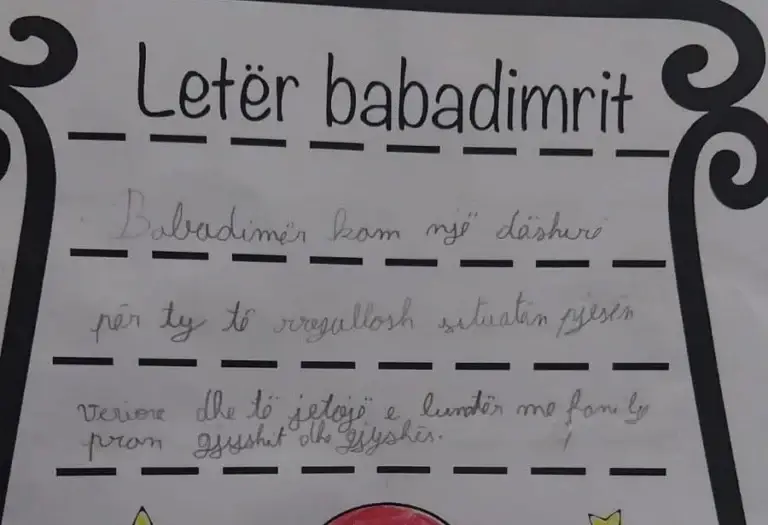 Letër babadimrit
Babadimër kam një dëshirë
për ty të rregullosh situatën pjesën
veriore dhe të jetojë e lumtër me family
pran gjyshit dhe gjyshës.